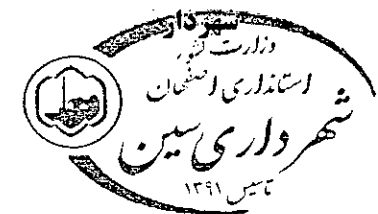 شهردار
وزارت کشور
استانداری اصفهان
شهرداری سین
تاسیس ۱۳۹۱